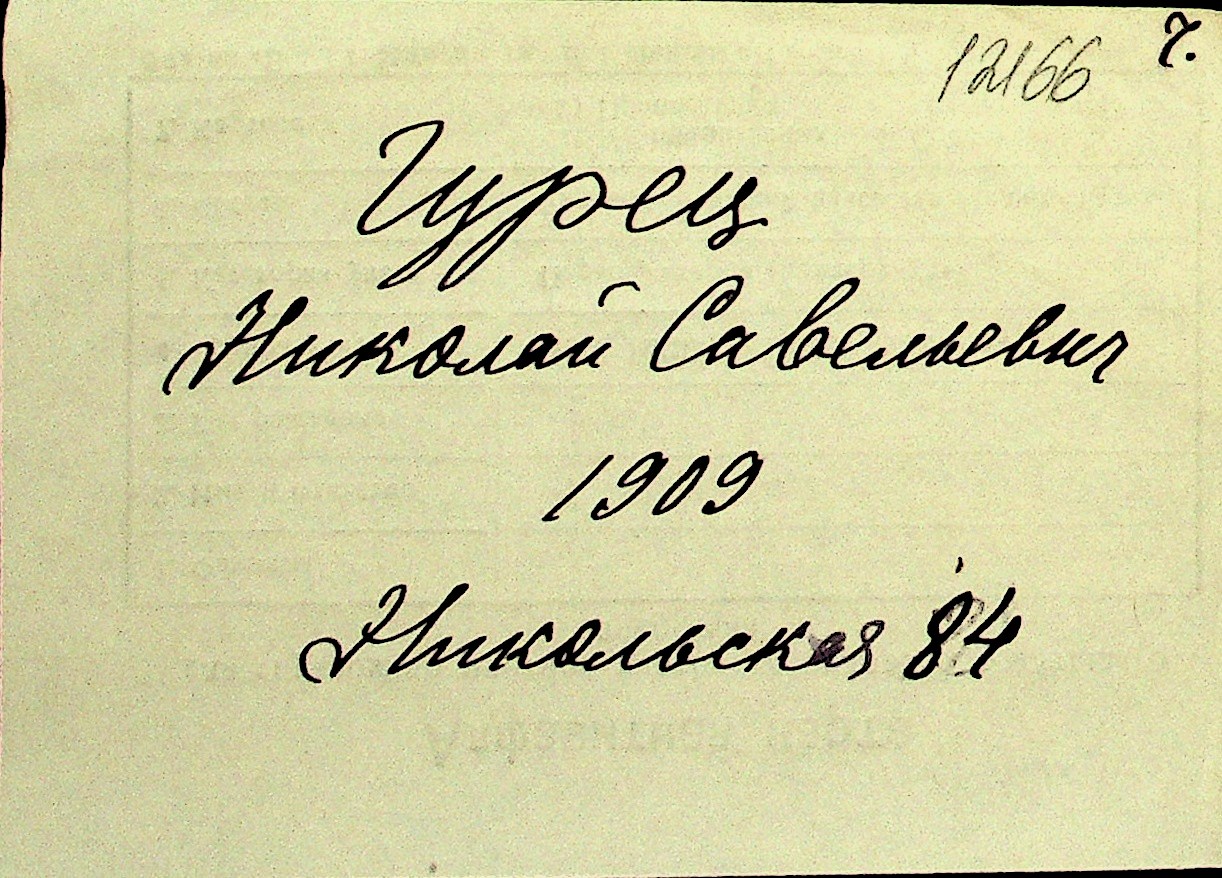 12166 7.
Гурец
Николай Савельевич
1909
Никольская 84